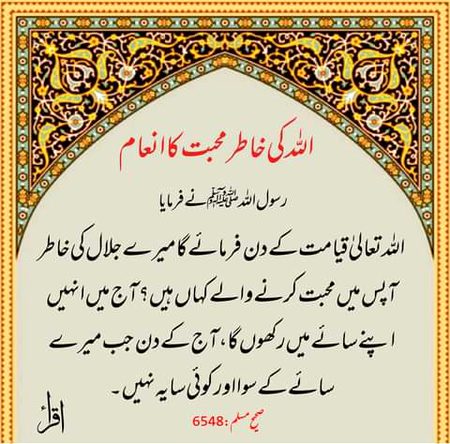 اللہ کی خاطر محبت کا انعام
رسول اللہ ﷺ نے فرمایا
اللہ تعالیٰ قیامت کے دن فرمائے گا میرے جلال کی خاطر
آپس میں محبت کرنے والے کہاں ہیں؟ آج میں انہیں
اپنے سائے میں رکھوں گا، آج کے دن جب میرے
سائے کے سوا اور کوئی سایہ نہیں۔
صحیح مسلم: 6548
اقرأ